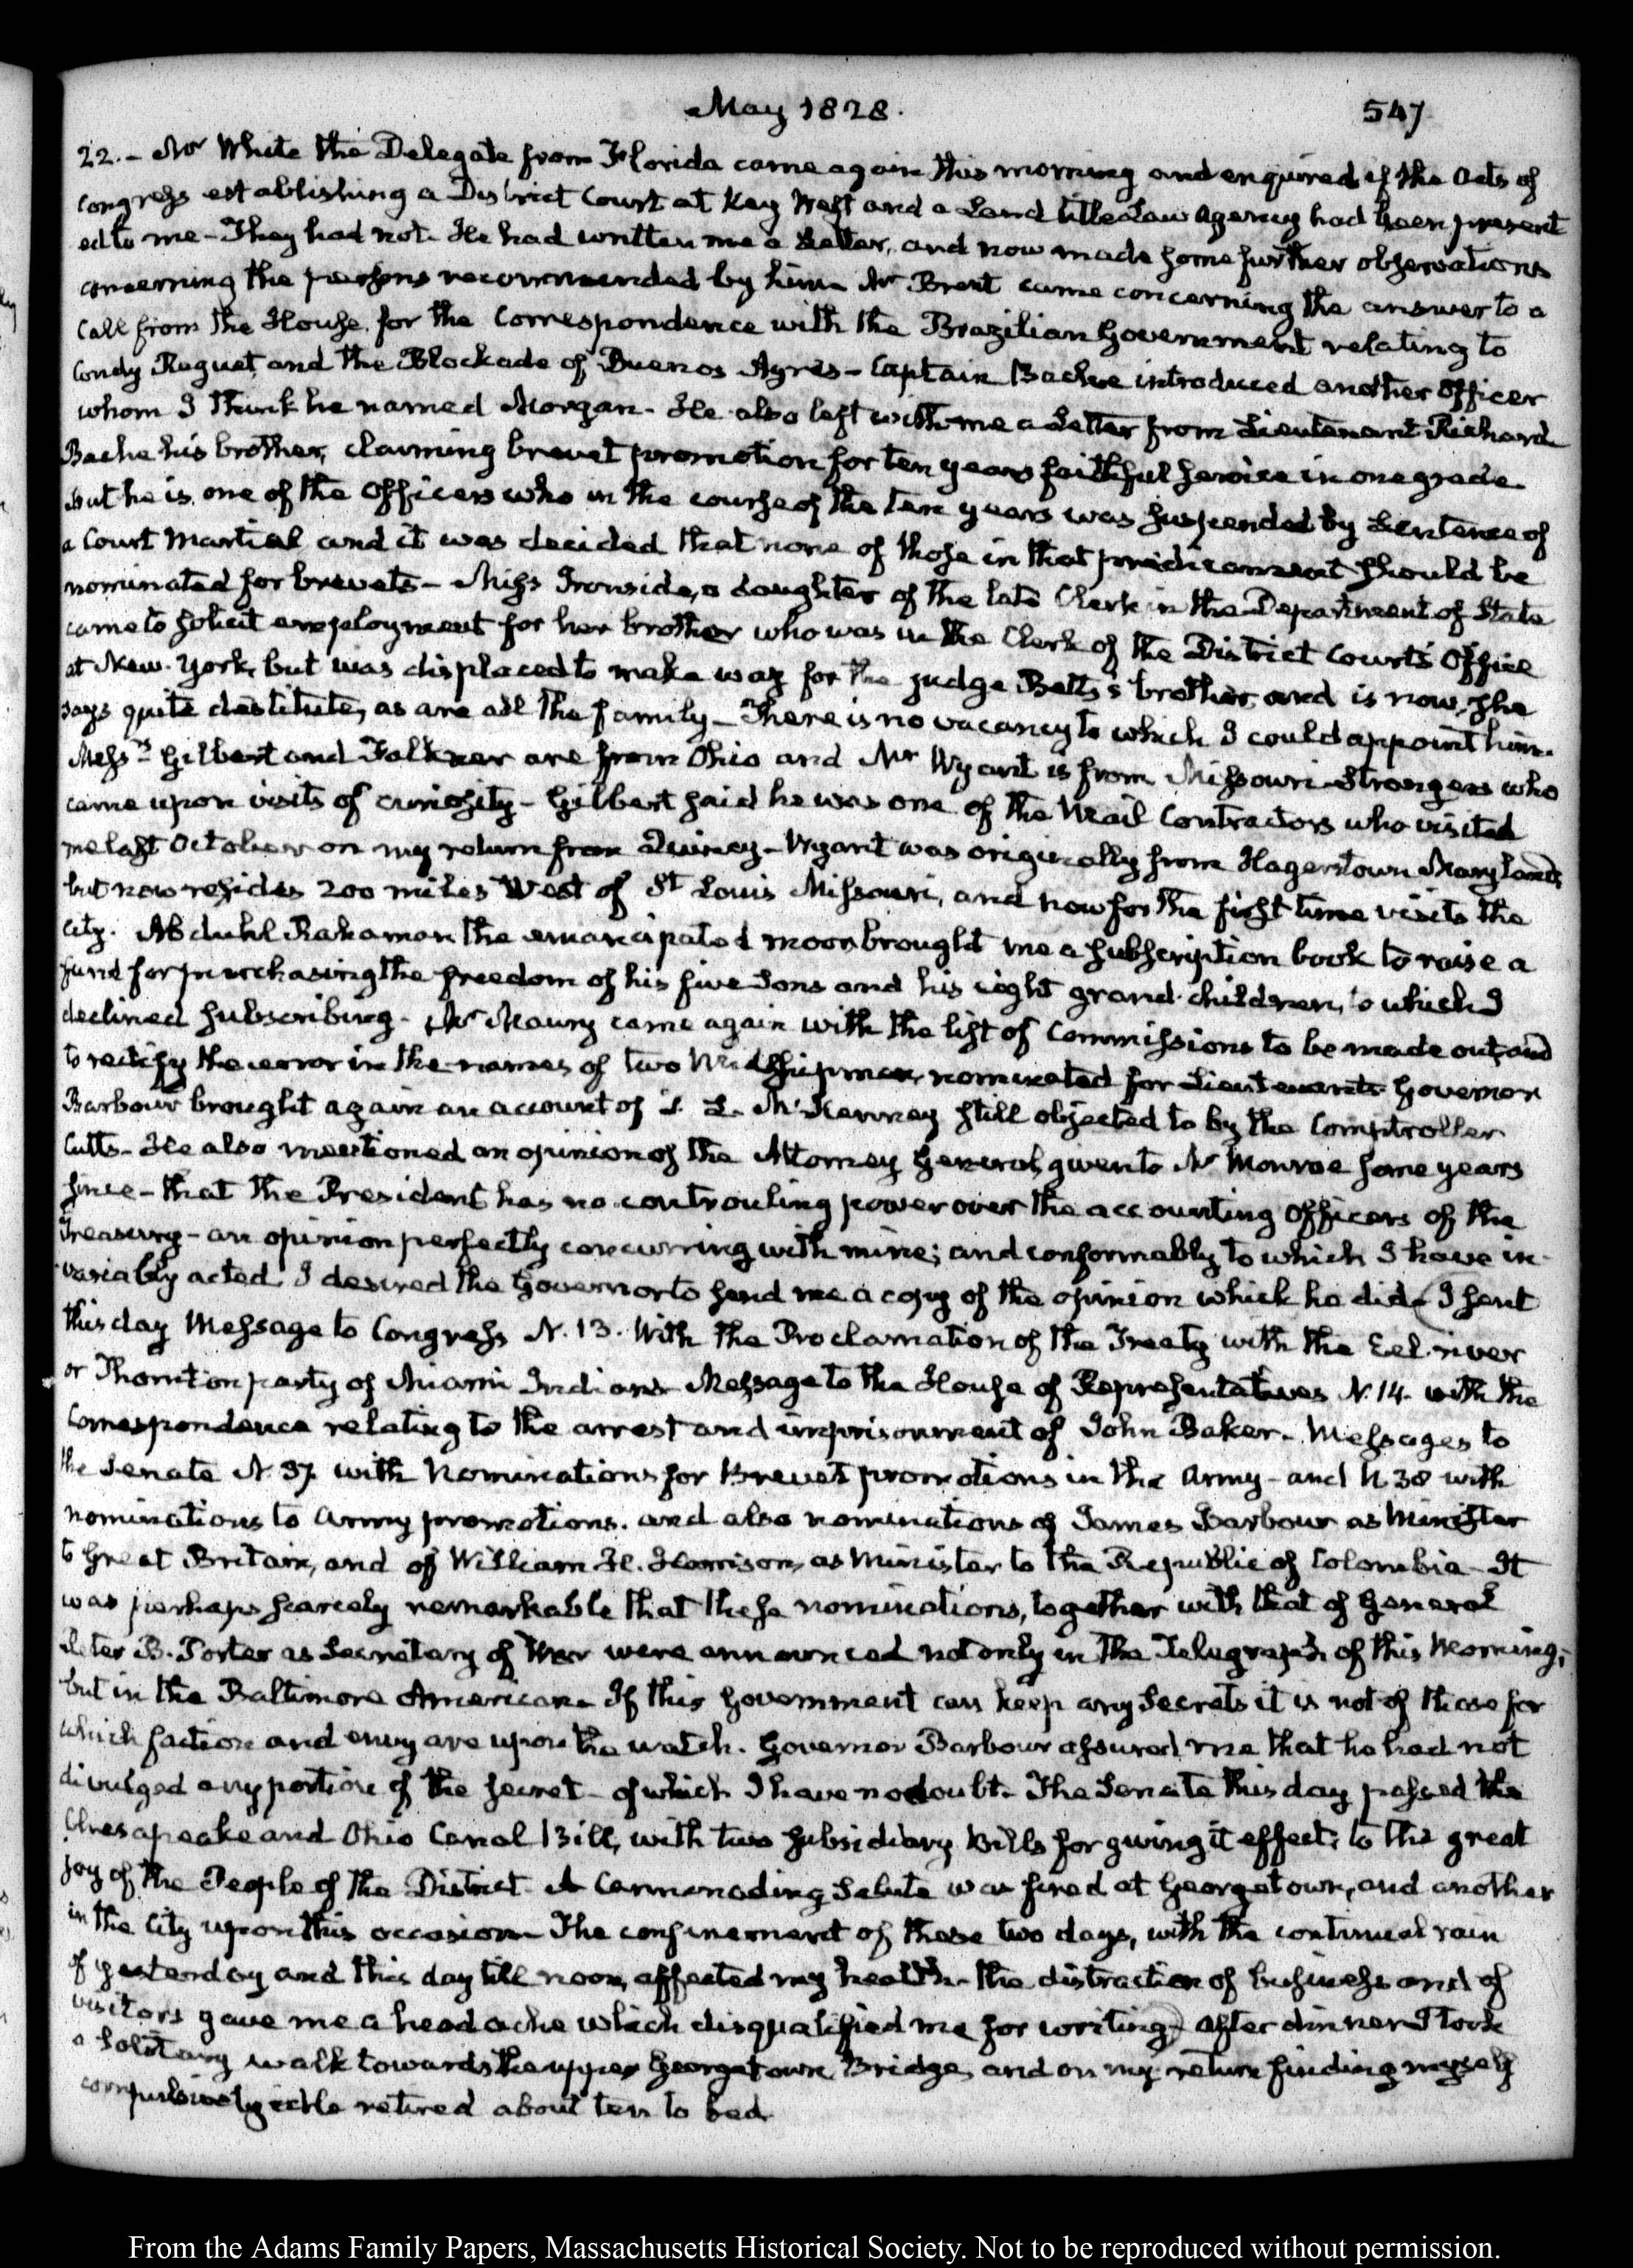 May 1828.
547
22.– Mr White the Delegate from Florida came again this morning and enquired if the Acts of
Congress establishing a District Court at Key West and a Land title Law Agency had been present
ed to me – They had not. He had written me a Letter, and now made some further observations
concerning the persons recommended by him. Mr Brent came concerning the answer to a
Call from the House, for the Correspondence with the Brazilian Government relating to
Condy Raguet and the Blockade of Buenos Ayres – Captain Bache introduced another Officer
whom I think he named Morgan. He also left with me a Letter from Lieutenant Richard
Bache his brother, claiming brevet promotion for ten years faithful service in one grade
but he is one of the Officers who in the course of the ten years was suspended by Sentence of
a Court Martial and it was decided that none of those in that predicament should be
nominated for brevets – Miss Ironside, a daughter of the late Clerk in the Department of State
came to solicit employment for her brother who was in the Clerk of the District Court's Office
at New-York, but was displaced to make way for the judge Betts's brother, and is now, she
says quite destitute, as are all the family – There is no vacancy to which I could appoint him.
Messrs Gilbert and Falkner are from Ohio and Mr Wyant is from Missouri – Strangers who
came upon visits of curiosity – Gilbert said he was one of the Mail Contractors who visited
me last October on my return from Quincy – Wyant was originally from Hagerstown Maryland,
but now resides 200 miles West of St Louis Missouri, and now for the first time visits the
City. Abduhl Rahaman the emancipated moor brought me a subscription book to raise a
fund for purchasing the freedom of his five Sons and his eight grand-children, to which I
declined subscribing – Mr Maury came again with the list of Commissions to be made out, and
to rectify the error in the names of two Midshipmen, nominated for Lieutenants Governor
Barbour brought again an account of T. L. McKenney still objected to by the Comptroller
Cutts – He also mentioned an opinion of the Attorney General, given to Mr Monroe some years
since – that the President has no controuling power over the accounting Officers of the
Treasury – an opinion perfectly concurring with mine; and conformably to which I have in
variably acted. I desired the Governor to send me a copy of the opinion which he did – I sent
this day Message to Congress N. 13. With the Proclamation of the Treaty with the Eel-river
or Thornton party of Miami Indians Message to the House of Representatives N. 14. with the
Correspondence relating to the arrest and imprisonment of John Baker – Messages to
the Senate N. 37. with Nominations for Brevet promotions in the Army – and N. 38 with
nominations to Army promotions. and also nominations of James Barbour as Minister
to Great Britain, and of William H. Harrison, as Minister to the Republic of Colombia – It
was perhaps scarcely remarkable that these nominations, together with that of General
Peter B. Porter as Secretary of War were announced not only in the Telegraph of this Morning;
but in the Baltimore American. If this Government can keep any Secrets it is not of those for
which faction and envy are upon the watch. Governor Barbour assured me that he had not
divulged any portion of the secret – of which I have no doubt. The Senate this day passed the
Chesapeake and Ohio Canal Bill, with two subsidiary Bills for giving it effect; to the great
joy of the People of the District – A Cannonading Salute was fired at Georgetown, and another
in the City upon this occasion – The confinement of these two days, with the continual rain
of yesterday and this day till noon, affected my health. The distraction of business and of
visitors gave me a head ache which disqualified me for writing. After dinner I took
a solitary walk towards the upper Georgetown Bridge, and on my return finding myself
compulsively idle retired about ten to bed.
From the Adams Family Papers, Massachusetts Historical Society. Not to be reproduced without permission.